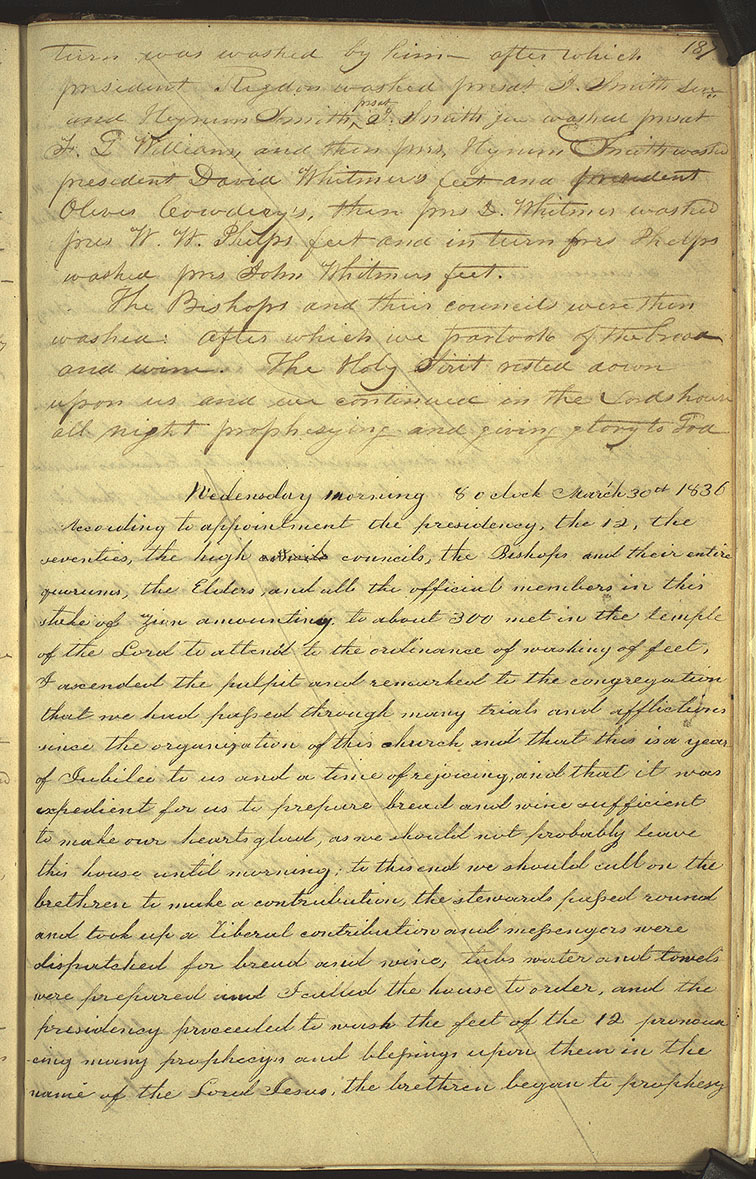 187
turn was washed by him— after which
president Rigdon washed presdt J. Smith Senr.
and Hyrum Smith, presdt J. Smith jun washed presdt
F. G Williams, and then pres. Hyrum Smith washed
president David Whitmer's feet and president
Oliver Cowdery's, then pres D. Whitmer washed
pres W. W. Phelps feet and in turn pres Phelps
washed pres John Whitmers feet.
The Bishops and their councils were then
washed: After which we partook of the bread
and wine. The Holy Spirit rested down
upon us and we continued in the Lords house
all night prophesying and giving glory to God
Wedensday morning 8 o clock March 30th 1836
According to appointment the presidency, the 12, the
seventies, the high councils, the Bishops and their entire
quorums, the Elders, and all the official members in this
stake of Zion amounting to about 300 met in the temple
of the Lord to attend to the ordinance of washing of feet,
I ascended the pulpit and remarked to the congregation
that we had passed through many trials and afflictions
since the organization of this church and that this is a year
of Jubilee to us and a time of rejoicing, and that it was
expedient for us to prepare bread and wine sufficient
to make our hearts glad, as we should not probably leave
this house until morning; to this end we should call on the
brethren to make a contribution, the stewards passed round
and took up a liberal contribution and messengers were
dispatched for bread and wine; tubs water and towels
were prepared and I called the house to order, and the
presidency proceeded to wash the feet of the 12 pronoun
-cing many prophecys and blessings upon them in the
name of the Lord Jesus, the brethren began to prophesy